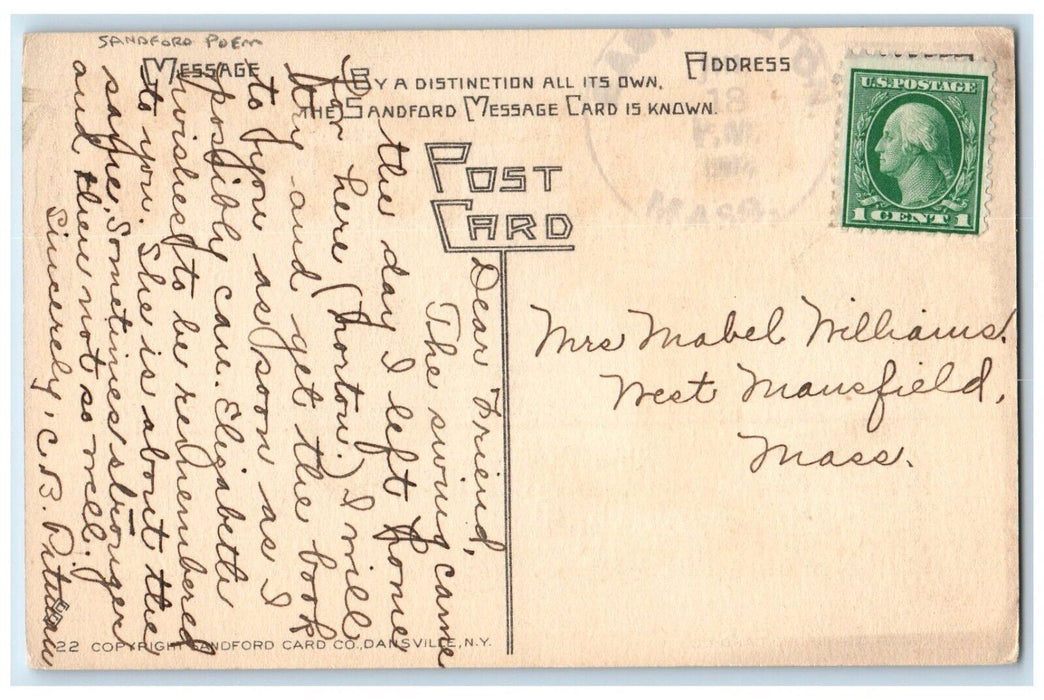 SANDFORD POEM
MESSAGE
ADDRESS
BY A DISTINCTION ALL ITS OWN,
THE SANDFORD MESSAGE CARD IS KNOWN.
POST
CARD
18
P.M.
MASS.
U.S. POSTAGE
1 CENT 1
Mrs Mabel Williams.
West Mansfield,
Mass.
Dear Friend,
The swing came
the day I left home
for here (Norton.) I will
try and get the book
to you as soon as I
possibly can. Elizabeth
wishes to be remembered
to you. She is about the
same. Sometimes stronger
and then not so well.
Sincerely, C. B.
22 COPYRIGHT SANDFORD CARD CO., DANSVILLE, N.Y.